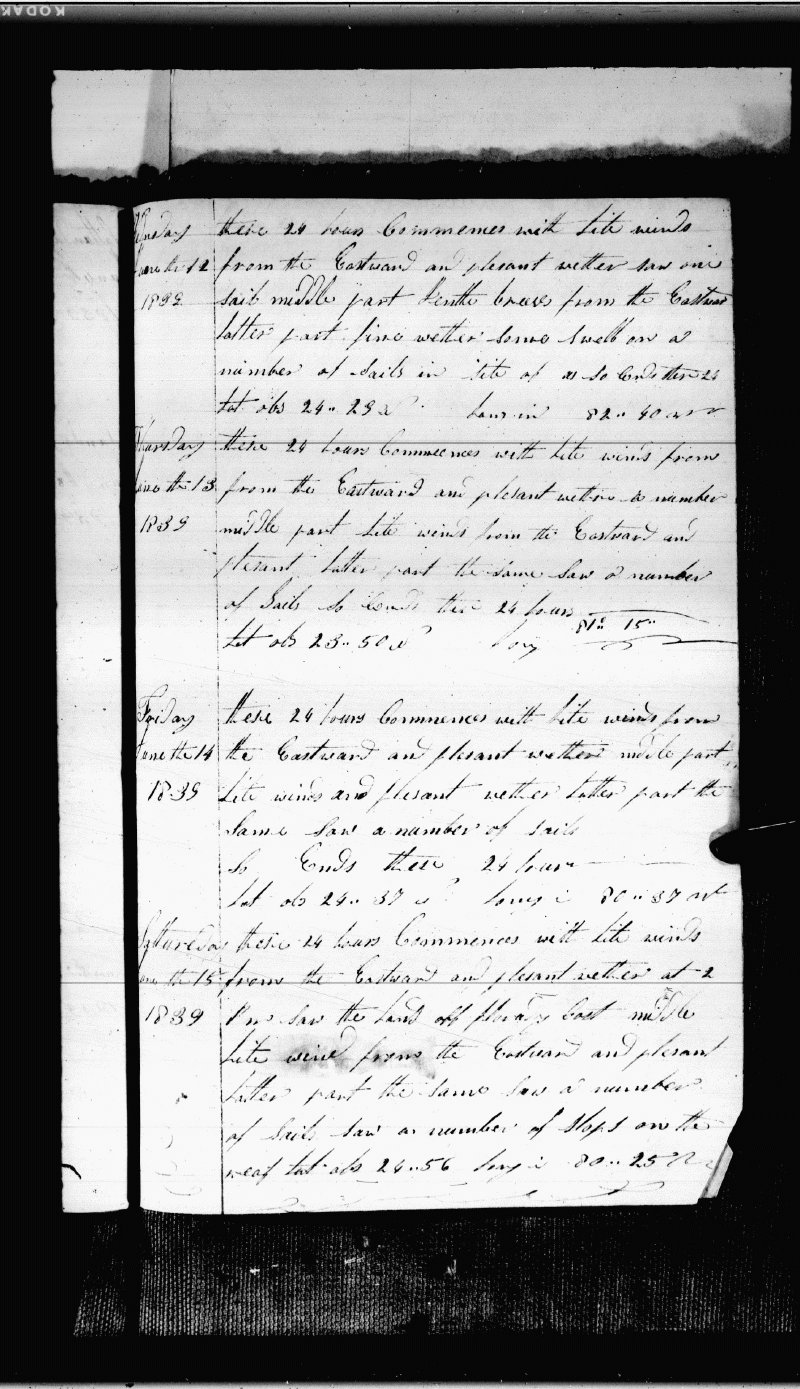 KODAK
Wensday these 24 hours Commences with lite winds
June the 12 from the Eastward and plesant wether saw one
1839 sail middle part Gentle breeze from the Eastward
latter part fine wether some swell on a
number of sails in site of us so Ends these 24
lat obs 24.. 29 hours in 82.. 40
Thursday these 24 hours Commences with lite winds from
June the 13 from the Eastward and plesant wether a number
1839 middle part lite winds from the Eastward and
plesant latter part the same saw a number
of Sails So Ends these 24 hours
lat obs 23.. 50 long 81.. 15..
Friday these 24 hours Commences with lite winds from
June the 14 the Eastward and plesant wether midle part
1839 lite winds and plesant wether latter part the
same saw a number of sails
So Ends these 24 hours
lat obs 24.. 37 long in 80.. 37
Satturday these 24 hours Commences with lite winds
June the 15 from the Eastward and plesant wether at 2
1839 Pm saw the land off Cost middle
lite wind from the Eastward and plesant
latter part the same saw a number
of Sails saw a number of slops on the
reaf lat obs 24..56 long in 80..25